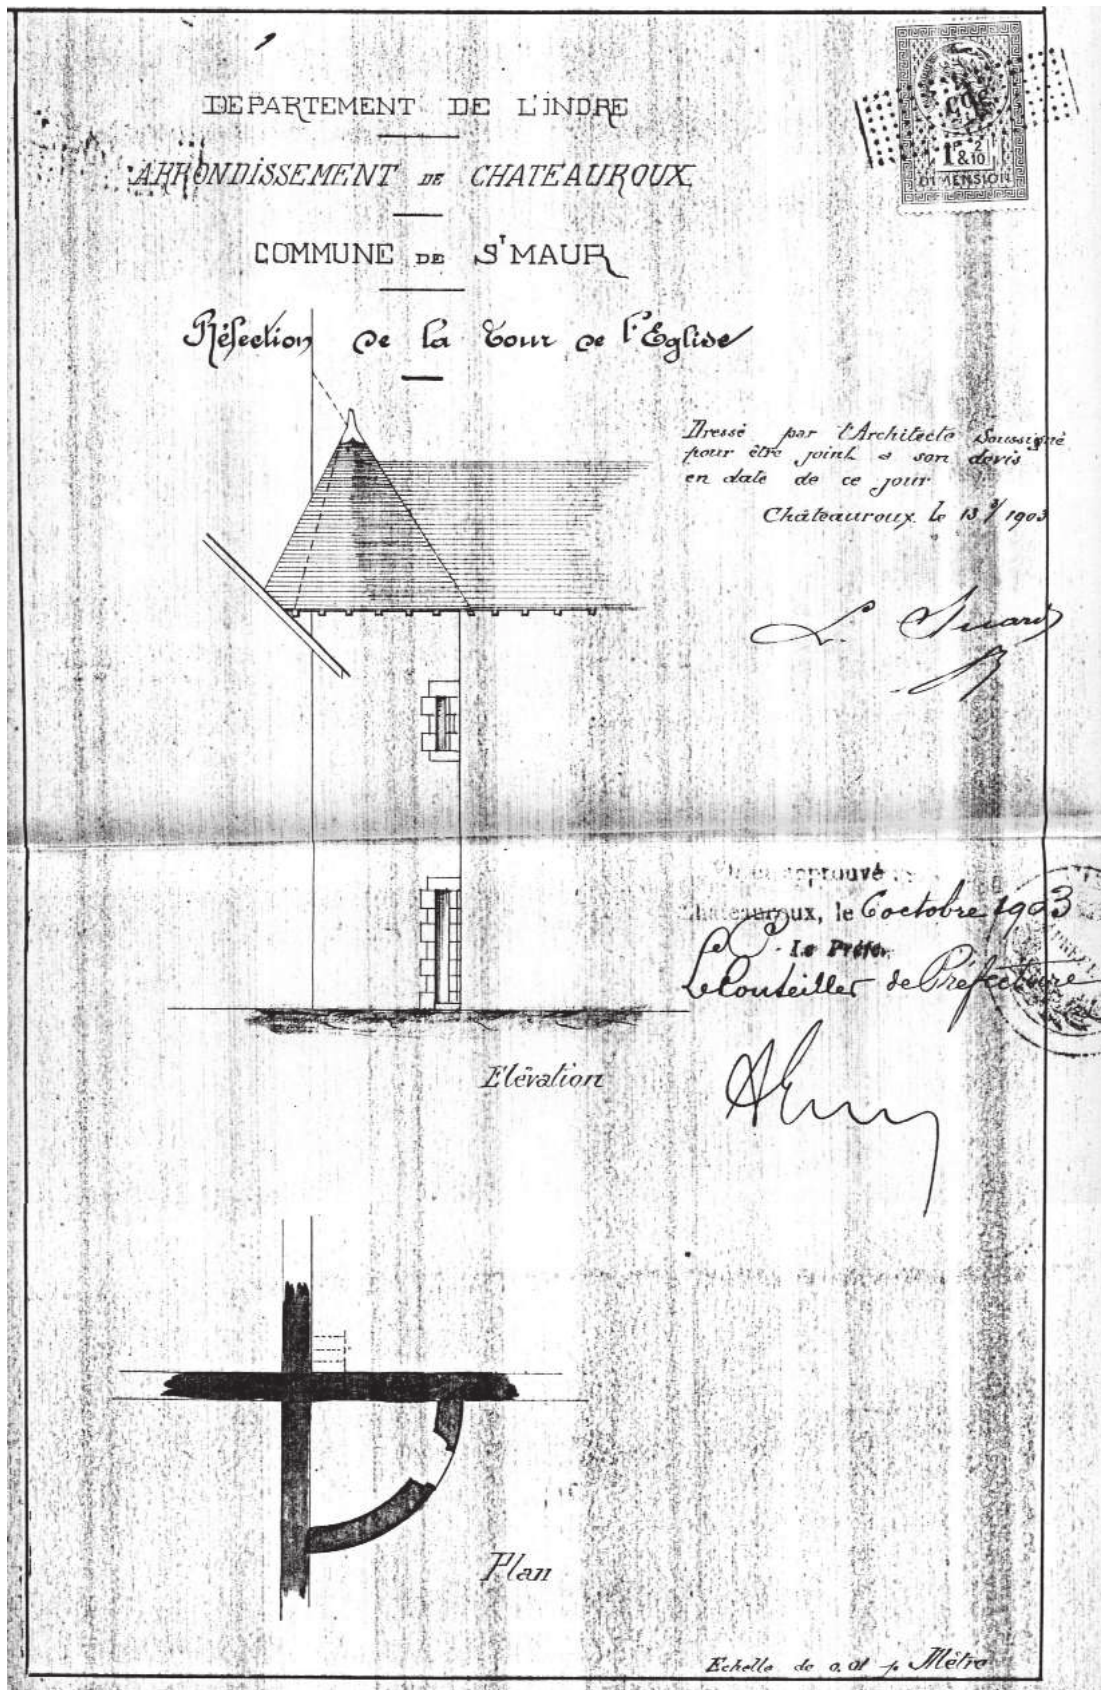 DEPARTEMENT DE L'INDRE
ARRONDISSEMENT DE CHATEAUROUX
COMMUNE DE St MAUR
Réfection de la Tour de l'Eglise
1F & 2/10
DIMENSION
Dressé par l'Architecte Soussigné
pour être joint a son devis
en date de ce jour
Châteauroux le 13 /1903
L. Suard
approuvé
Chateauroux, le 6 octobre 1903
Le Préfet
Le Conseiller de Préfecture
Elévation
Plan
Echelle de 0.01 p. Mètre